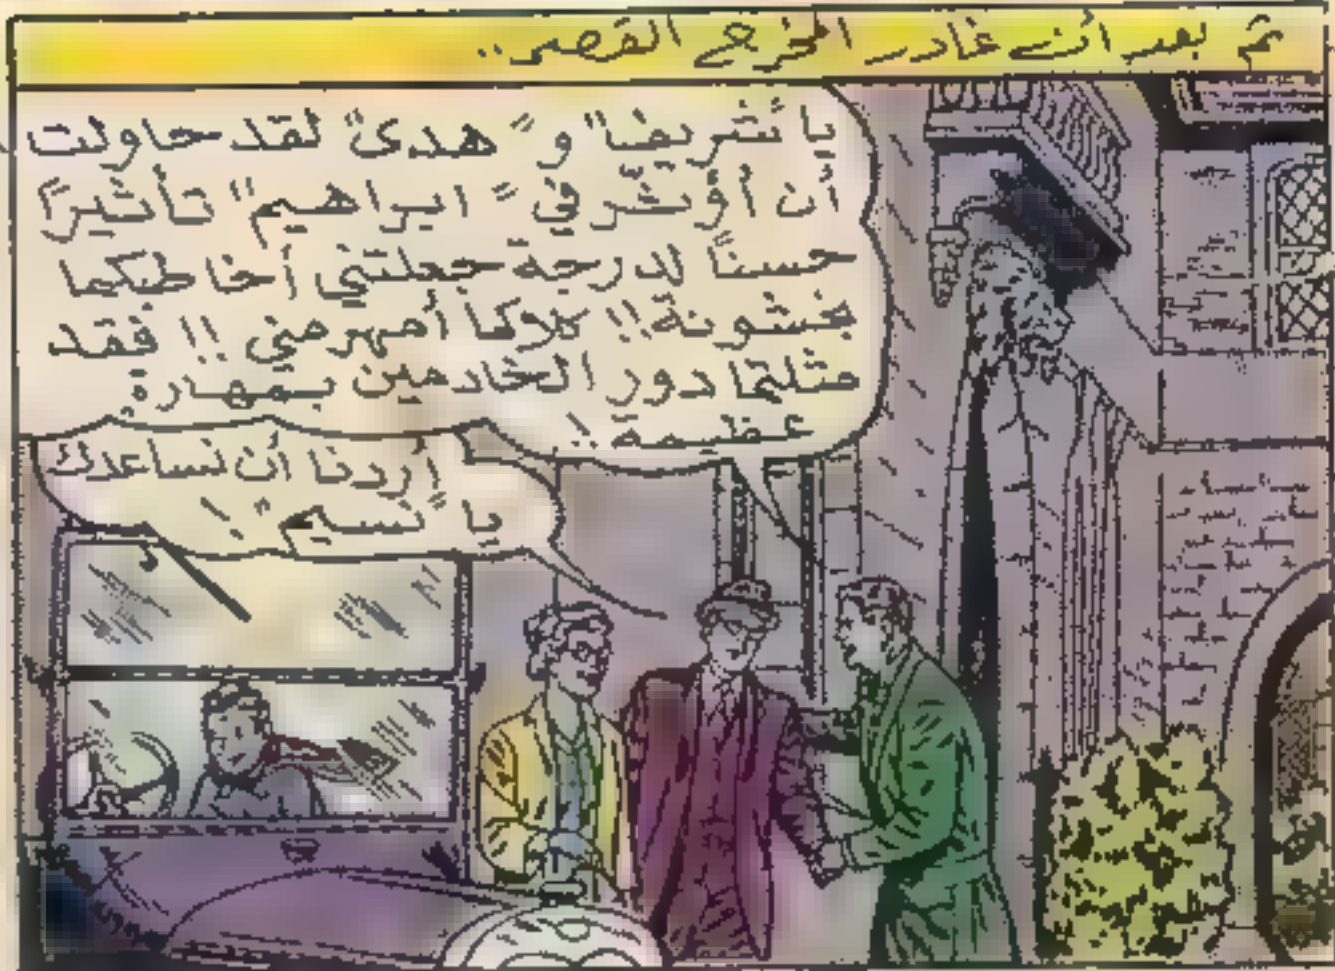 ثم بعد أن غادر المخرج القصر..
يا "شريف" و "هدى" لقد حاولت
أن أؤثر في "ابراهيم" تأثيرًا
حسنًا لدرجة جعلتني أخاطبكما
بخشونة!! كلاكما أمهر مني!! فقد
مثلتما دور الخادمين بمهارة
عظيمة!!
أردنا أن نساعدك
يا "نسيم"!